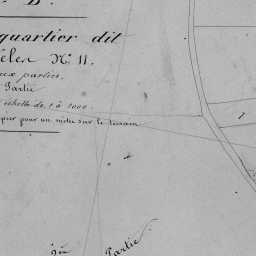 B.
quartier dit
N.º 11.
parties.
Partie
échelle de 1 à 1000.
pour un mètre sur le terrain
1
Partie